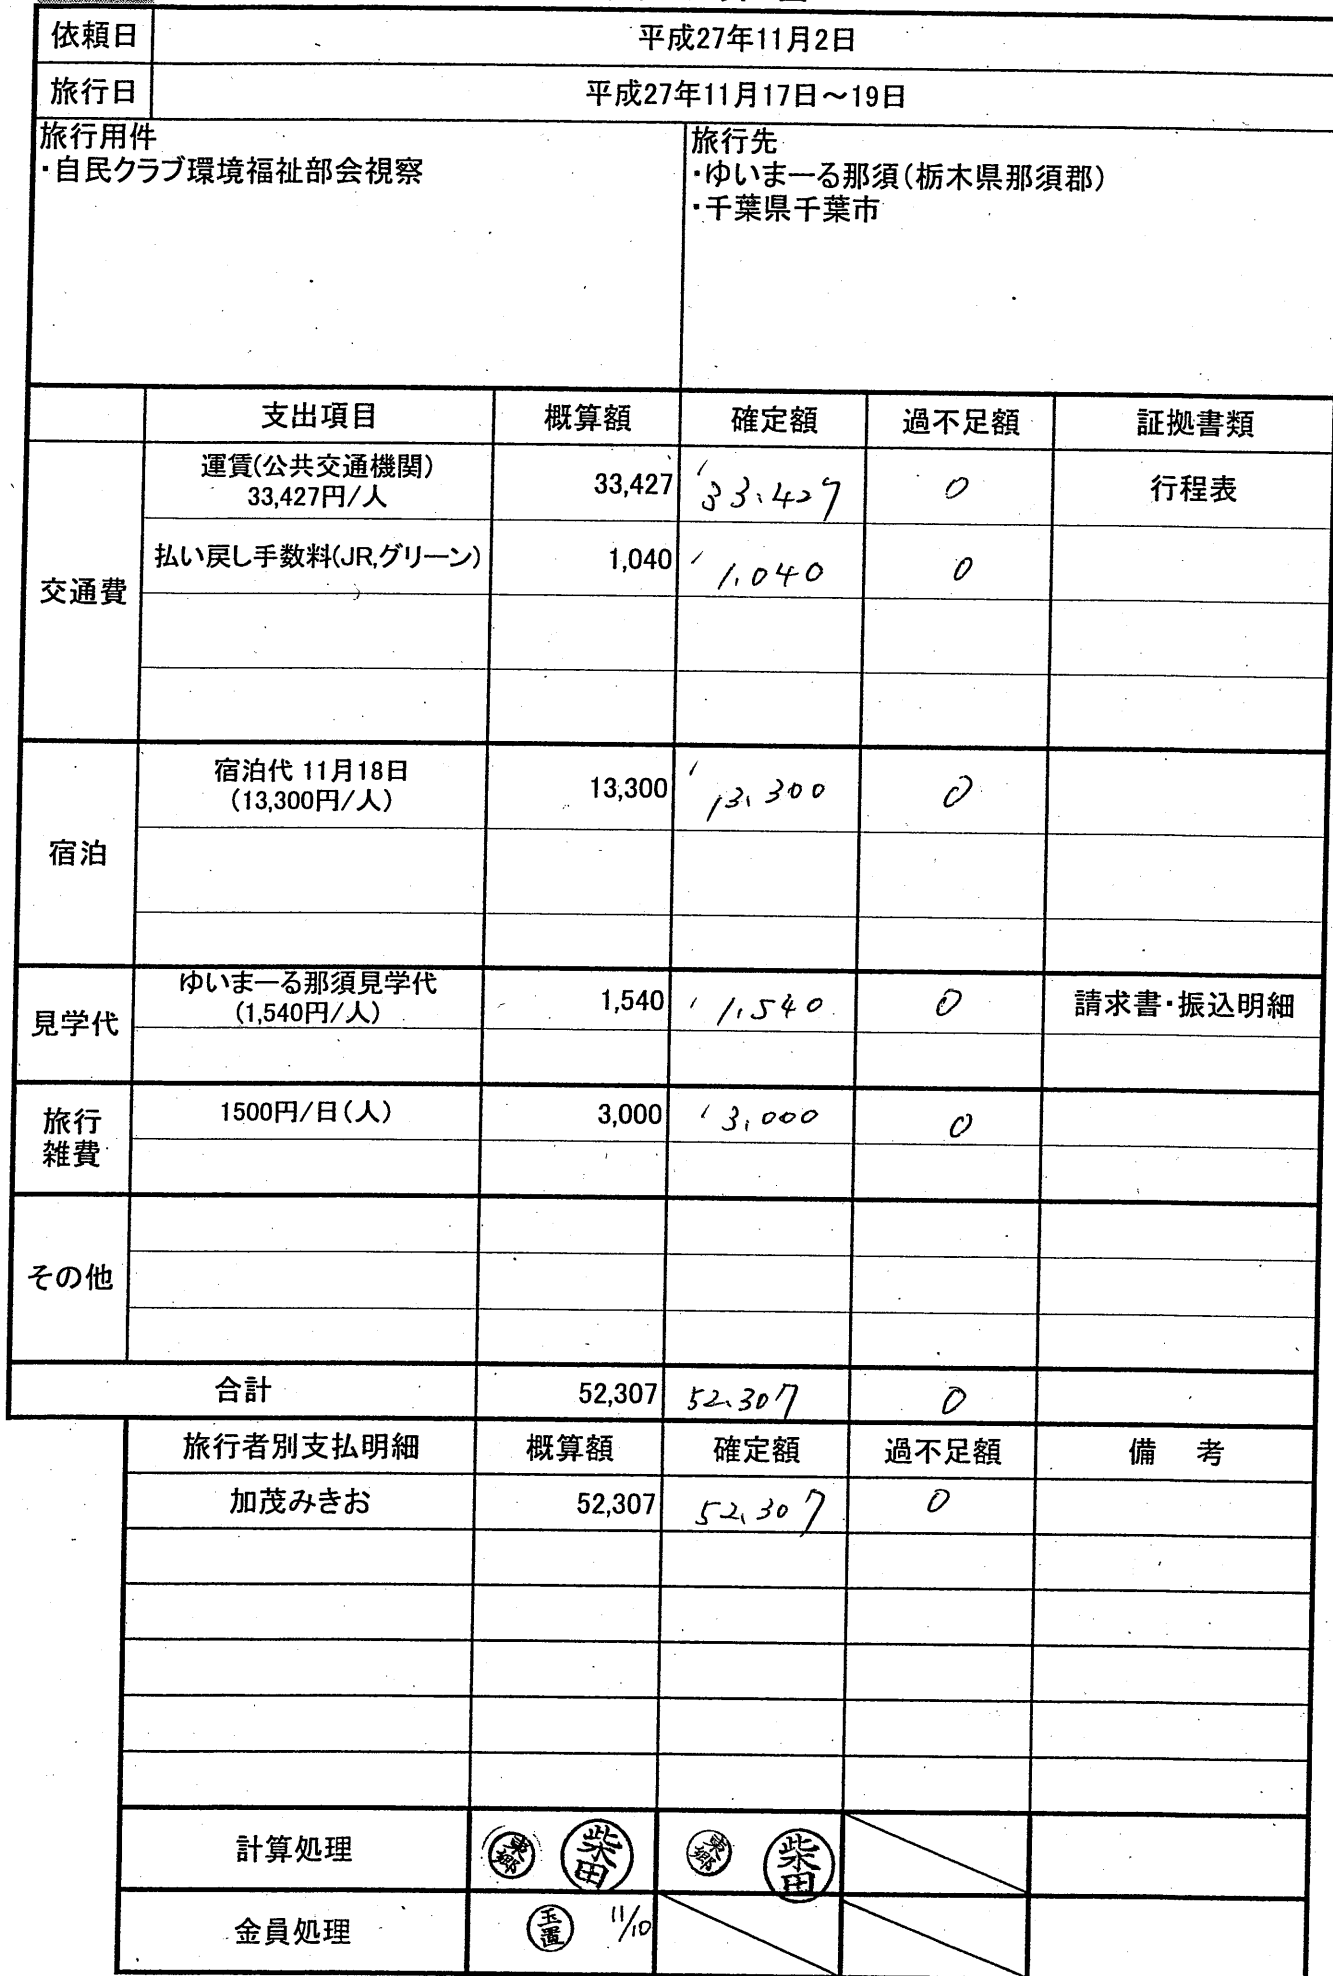 依頼日 平成27年11月2日
旅行日 平成27年11月17日～19日
旅行用件
・自民クラブ環境福祉部会視察
旅行先
・ゆいまーる那須(栃木県那須郡)
・千葉県千葉市
支出項目 概算額 確定額 過不足額 証拠書類
交通費
運賃(公共交通機関)
33,427円/人 33,427 33,427 0 行程表
払い戻し手数料(JR,グリーン) 1,040 1,040 0
宿泊
宿泊代 11月18日
(13,300円/人) 13,300 13,300 0
見学代
ゆいまーる那須見学代
(1,540円/人) 1,540 1,540 0 請求書・振込明細
旅行
雑費
1500円/日(人) 3,000 3,000 0
その他
合計 52,307 52,307 0
旅行者別支払明細 概算額 確定額 過不足額 備 考
加茂みきお 52,307 52,307 0
計算処理 東郷 柴田 東郷 柴田
金員処理 玉置 11/10